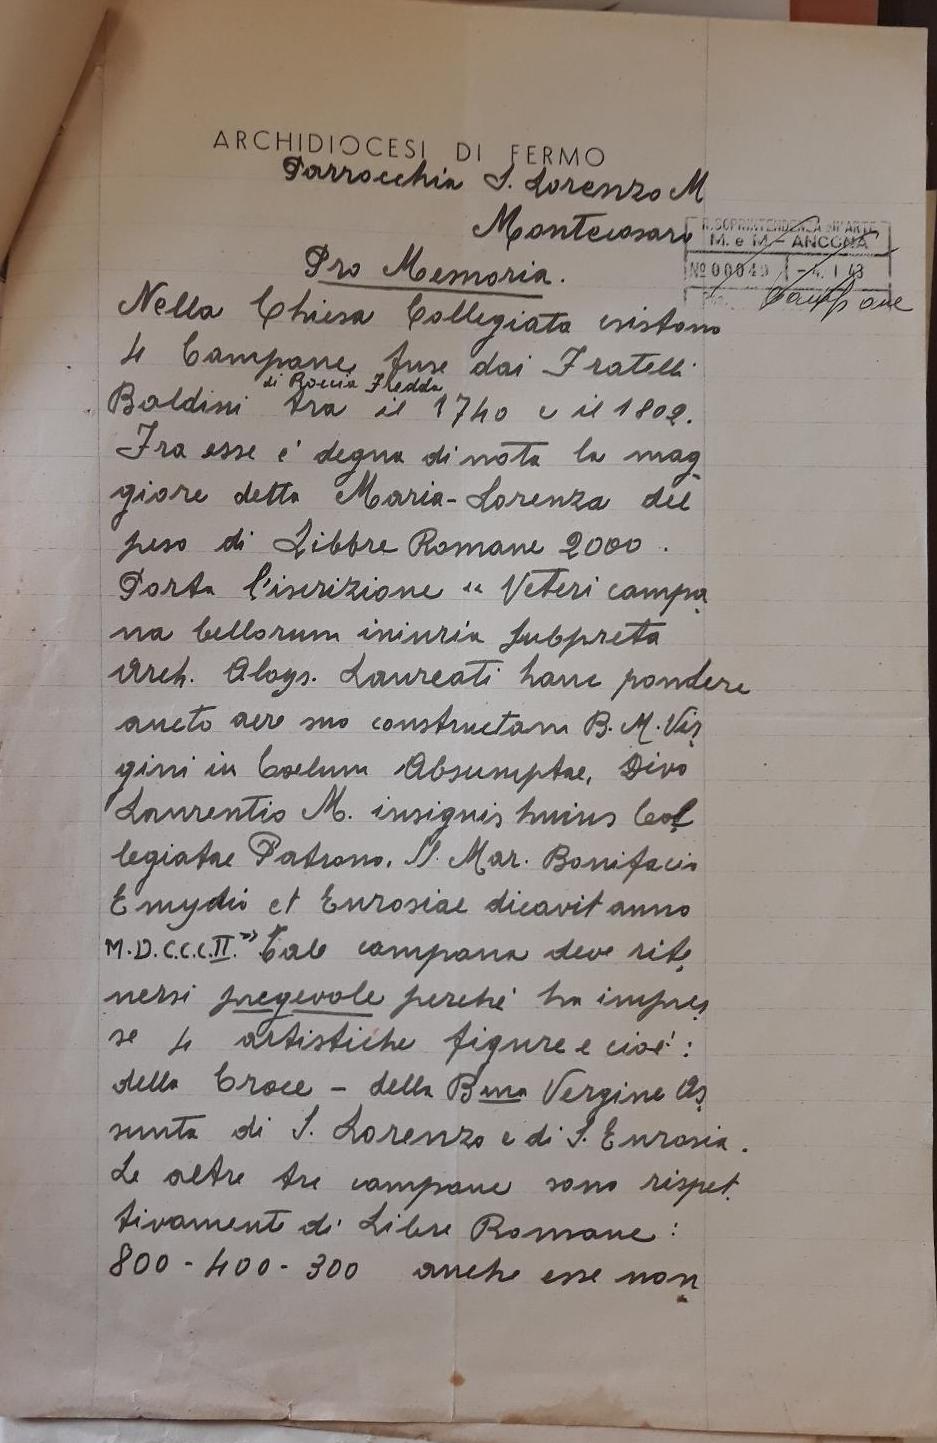 ARCHIDIOCESI DI FERMO
Parrocchia S. Lorenzo M
Montecosaro
R. SOPRINTENDENZA all'ARTE
M. e M. - ANCONA
Nº 00049 - 4. 1. 43
Campane
Pro Memoria.
Nella Chiesa Collegiata esistono
4 Campane fuse dai Fratelli
di Roccia Fredda
Baldini tra il 1740 e il 1802.
Fra esse e' degna di nota la mag
giore detta Maria-Lorenza del
peso di Libbre Romane 2000.
Porta l'iscrizione “ Veteri campa
na bellorum iniuria subpreta
Arch. Aloys. Laureati hanc pondere
aucto aere suo constructam B. M. Vir
gini in Coelum Absumptae, Divo
Laurentio M. insignis huius Col
legiatae Patrono, SS. Mar. Bonifacio
Emydio et Eurosiae dicavit anno
M.D.C.C.C.II.” Tale campana deve rite
nersi pregevole perché ha impres
se 4 artistiche figure e cioe':
della Croce - della Bma Vergine As
sunta di S. Lorenzo e di S. Eurosia.
Le altre tre campane sono rispet
tivamente di Libre Romane:
800 - 400 - 300 anche esse non